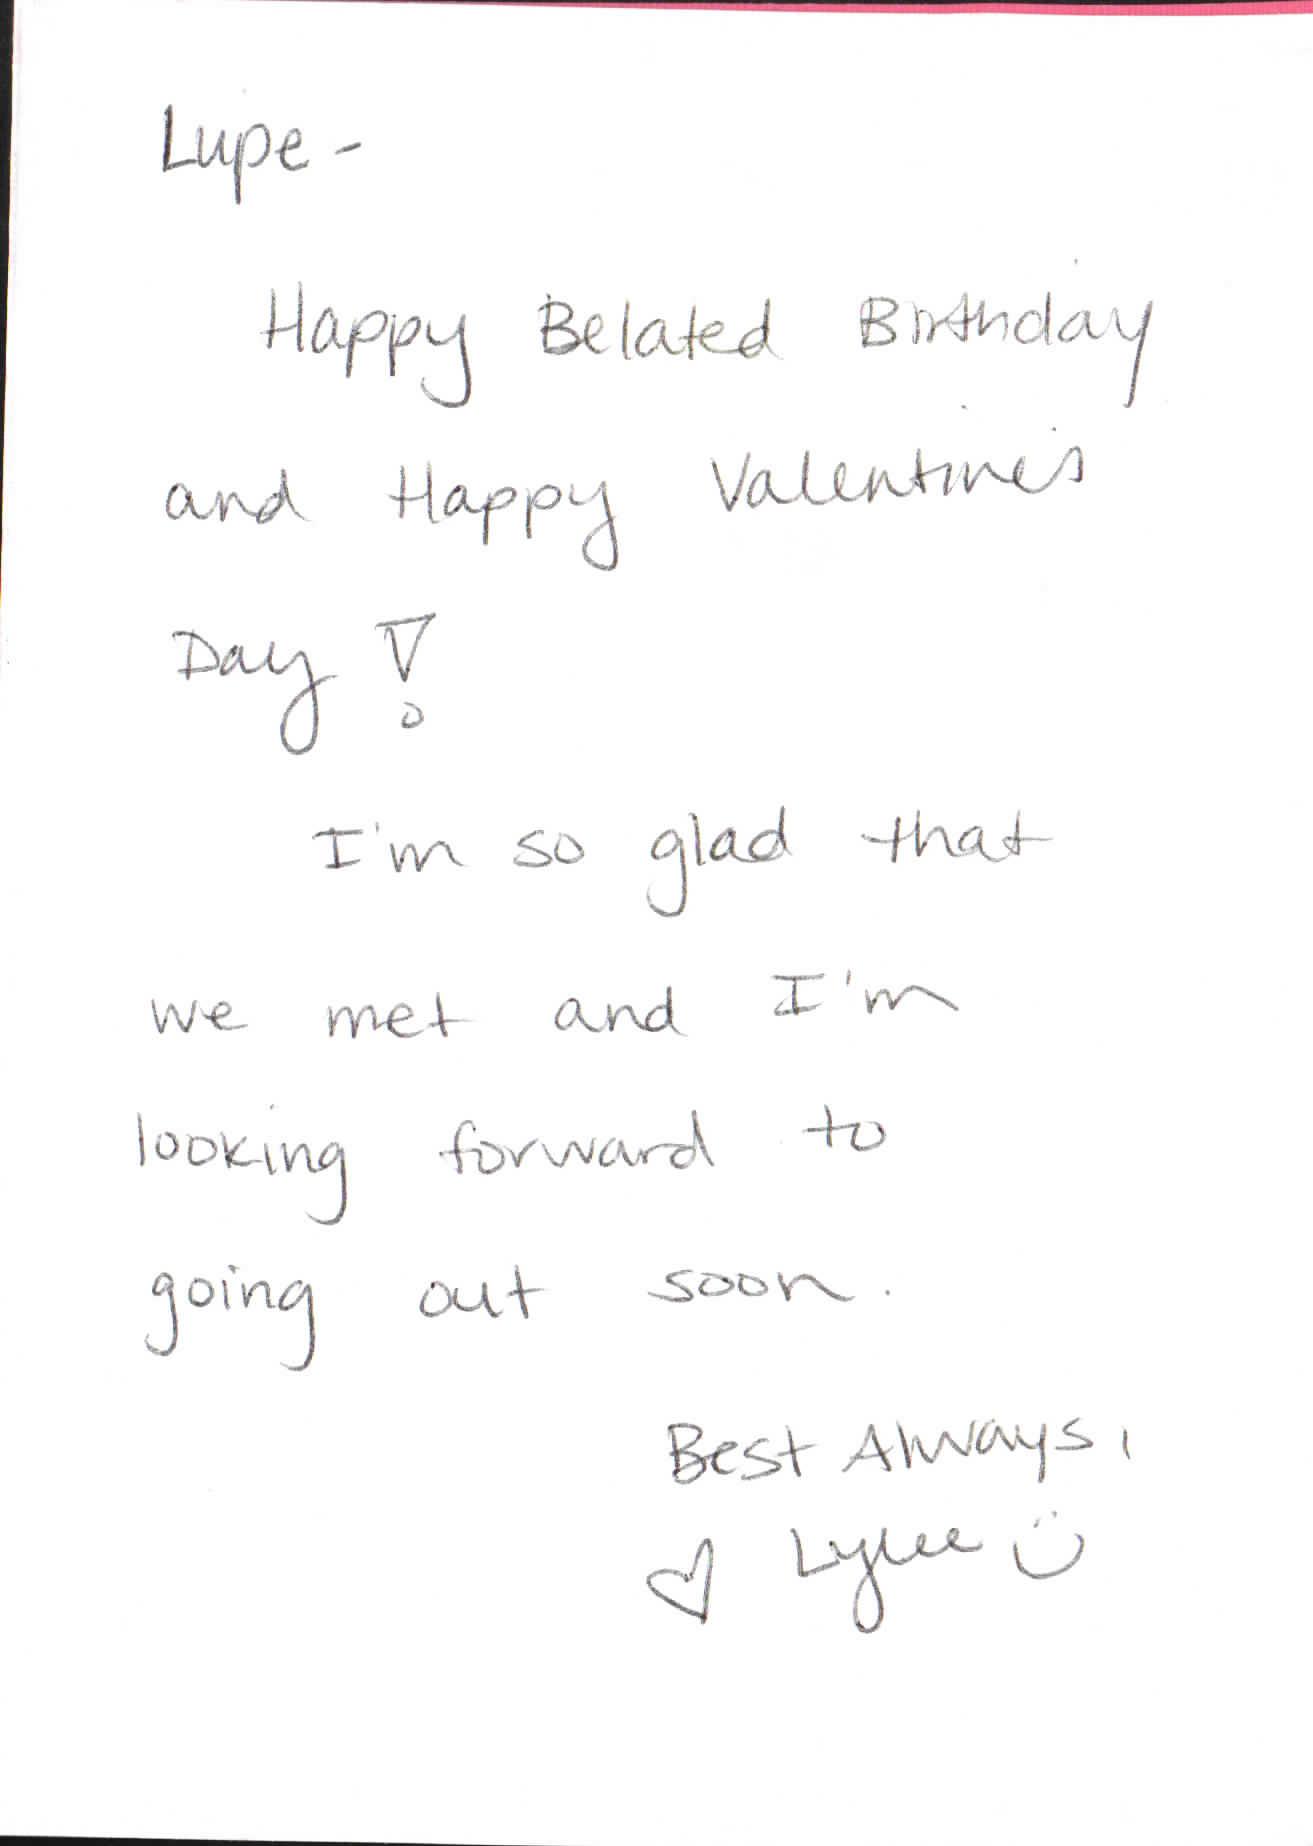 Lupe -
Happy Belated Birthday
and Happy Valentine's
Day!
I'm so glad that
we met and I'm
looking forward to
going out soon.
Best Always,
♡ Lylee ☺